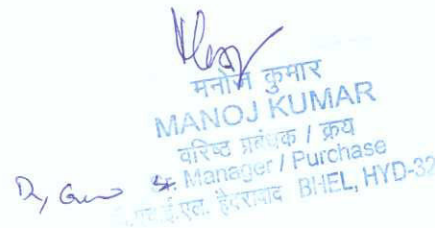 मनोज कुमार
MANOJ KUMAR
वरिष्ठ प्रबंधक / क्रय
Sr. Manager / Purchase
हैदराबाद BHEL, HYD-32